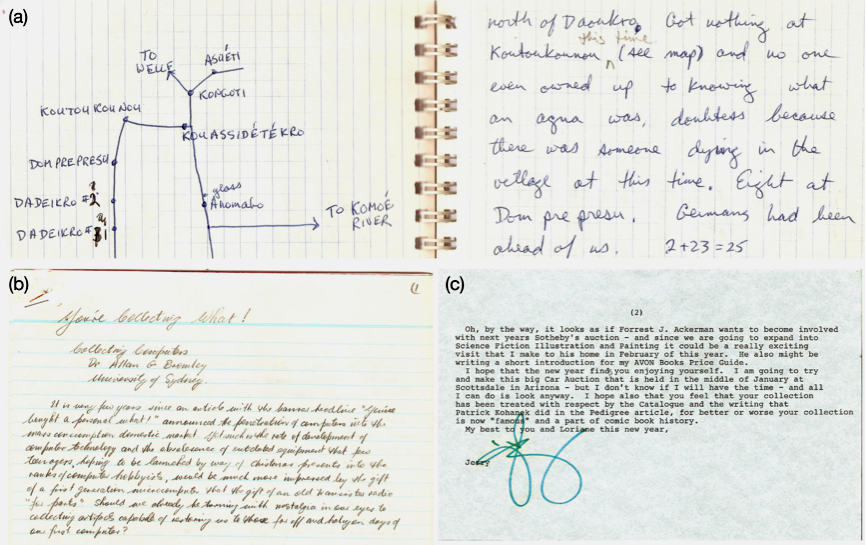 (a)
TO
WELLE
ASUÉTI
KONGOTI
KOUTOU KOUNOU
KOUASSIDÉTÉKRO
DOMPREPRESU
glass
Ahomabo
DADEIKRO #2
DADEIKRO #1
TO KOMOÉ
RIVER
north of Daoukro. Got nothing at
this time
Koutoukounou (see map) and no one
even owned up to knowing what
an agua was, doubtless because
there was someone dying in the
vellage at this time. Eight at
Dom pre presu. Germans had been
ahead of us. 2+23=25
(b)
(1
You're Collecting What!
Collecting Computers
Dr Allan G Bromley
University of Sydney.
It is very few years since an article with the banner headline "You've
bought a personal what!" announced the penetration of computers into the
mass consumption domestic market. Yet such is the rate of development of
computer technology and the obsolescence of outdated equipment that few
teenagers, hoping to be launched by way of christmas presents into the
ranks of computer hobbyists, would be much more impressed by the gift
of a first generation microcomputer than the gift of an old transistor radio
"for parts". Should we already be turning with nostalgia in our eyes to
collecting artifacts capable of restoring us to those far off and halcyon days of
our first computer?
(c)
(2)
Oh, by the way, it looks as if Forrest J. Ackerman wants to become involved
with next years Sotheby's auction - and since we are going to expand into
Science Fiction Illustration and Painting it could be a really exciting
visit that I make to his home in February of this year. He also might be
writing a short introduction for my AVON Books Price Guide.
I hope that the new year find you enjoying yourself. I am going to try
and make this big Car Auction that is held in the middle of January at
Scottsdale in Arizona - but I don't know if I will have the time - and all
I can do is look anyway. I hope also that you feel that your collection
has been treated with respect by the Catalogue and the writing that
Patrick Kohanek did in the Pedigree article, for better or worse your collection
is now "famous" and a part of comic book history.
My best to you and Loriane this new year,
Jerry